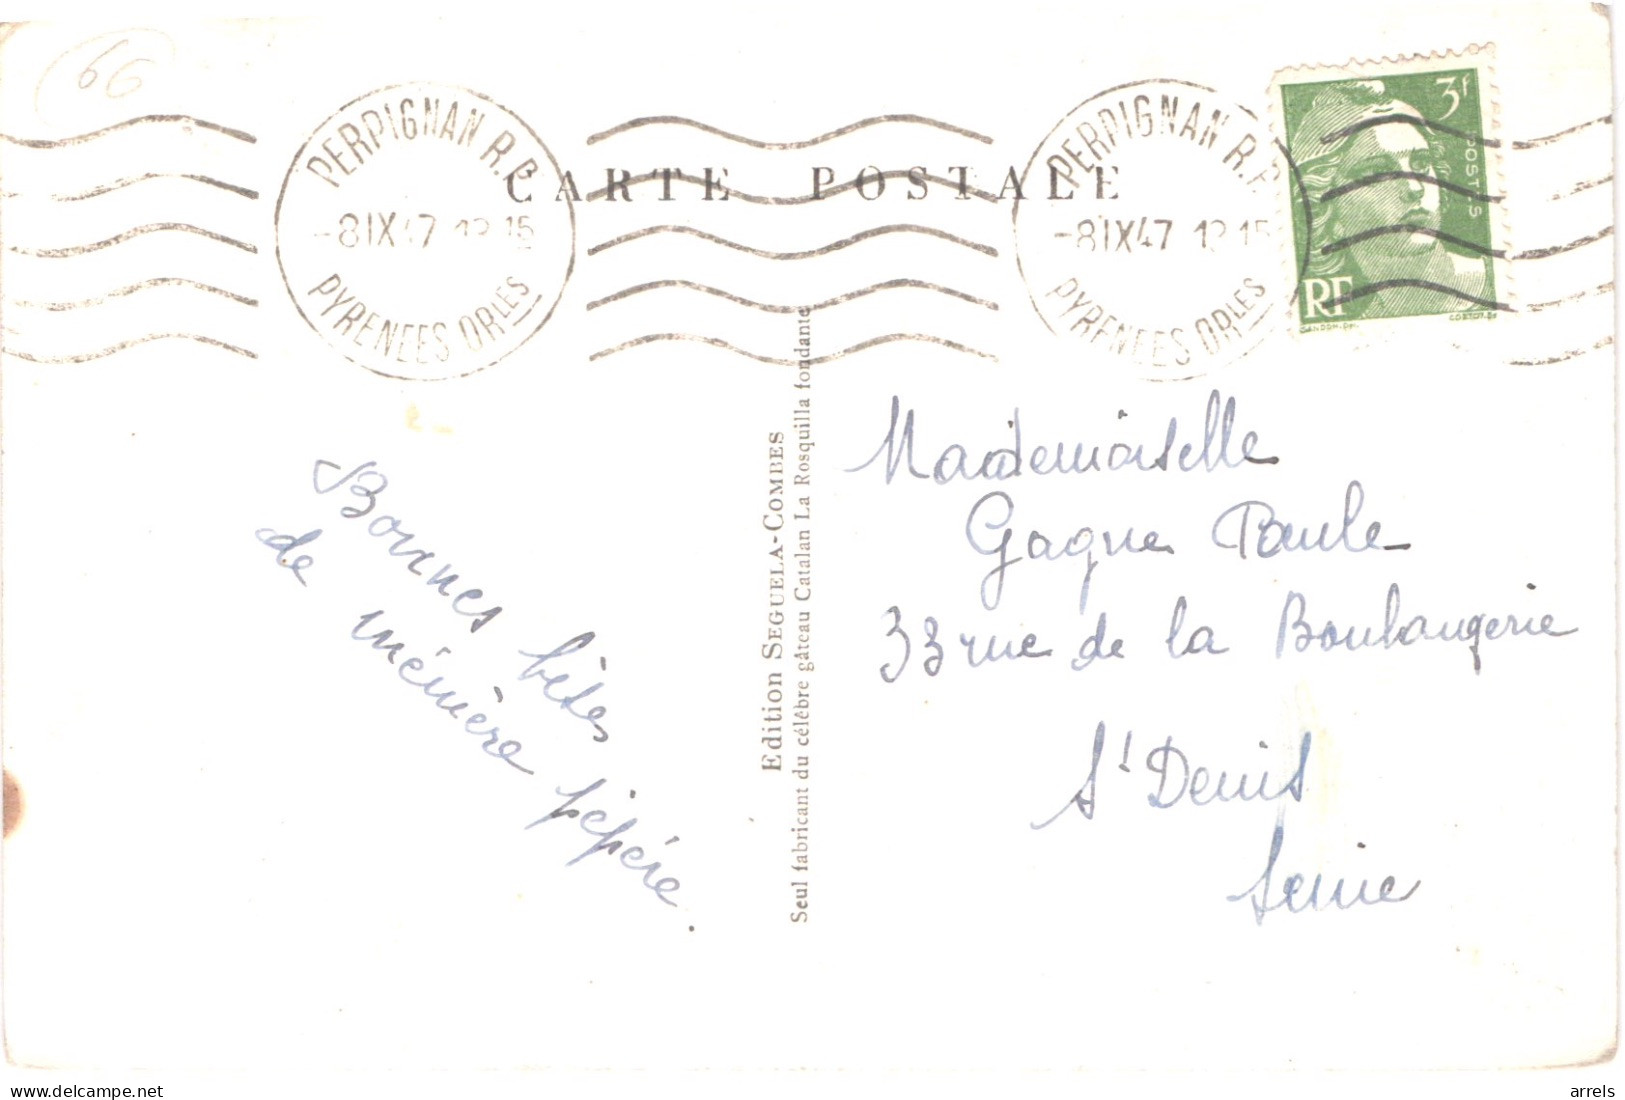 66
CARTE POSTALE
PERPIGNAN R.P.
-8 IX 47 15
PYRENEES ORLES
PERPIGNAN R.P.
-8 IX 47 15
PYRENEES ORLES
3F
POSTES
RF
GANDON.DEL
CORTOT.SC
Bonnes bises
de mémère pépère.
Edition SEGUELA-COMBES
Seul fabricant du célèbre gâteau Catalan La Rosquilla fondante
Mademoiselle
Gagne Paule
33 rue de la Boulangerie
St Denis
Seine
delcampe.net
arrels